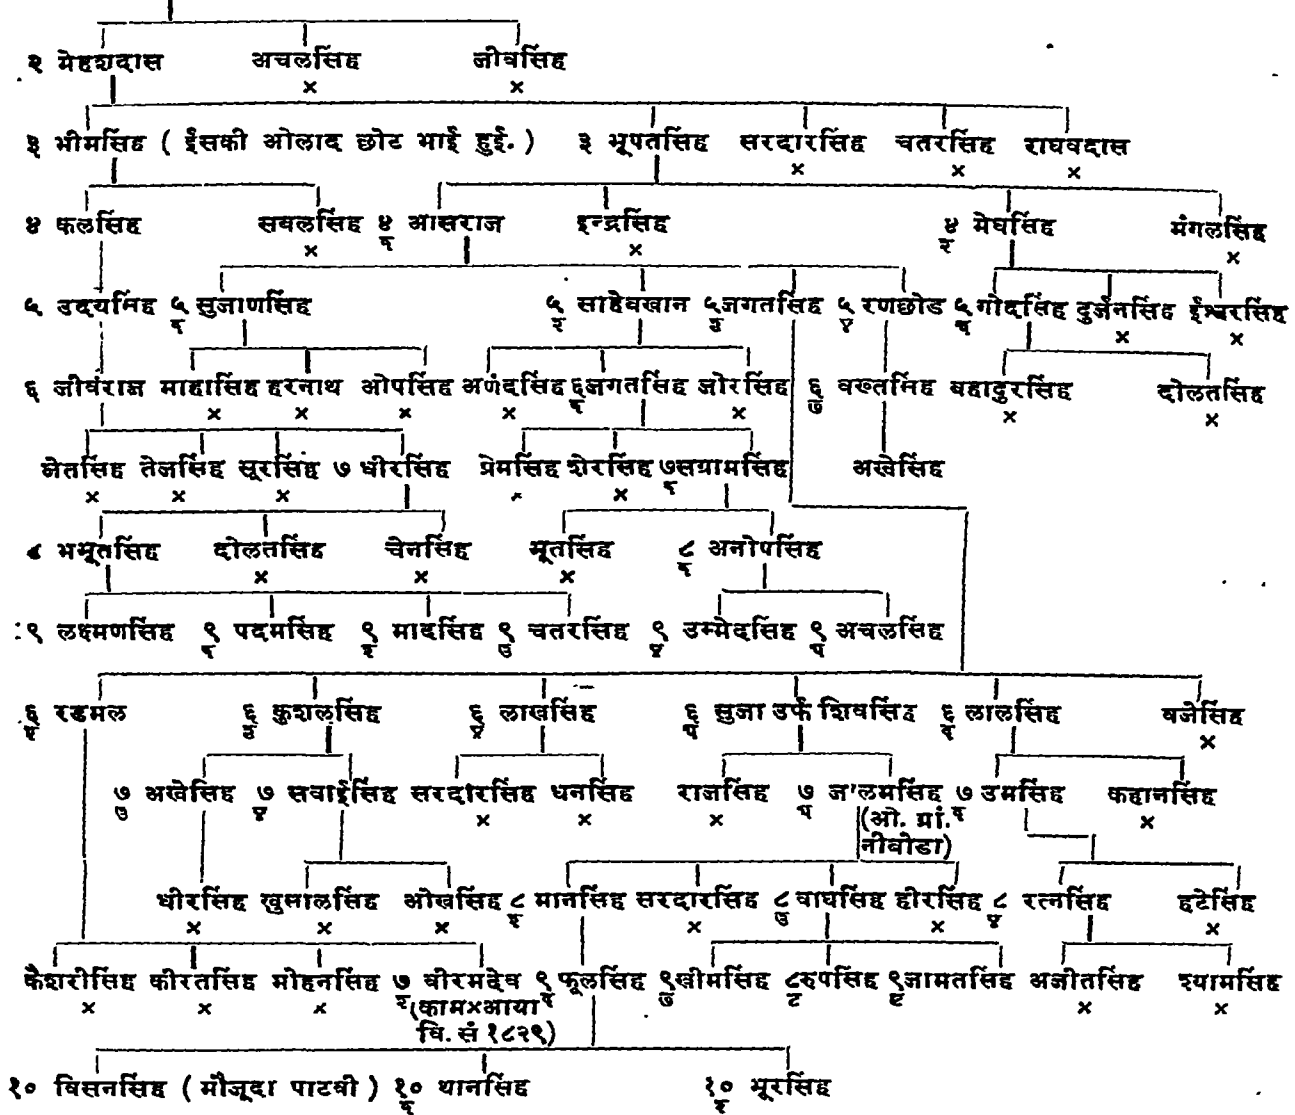 २ मेहशदास अचलसिंह जीवसिंह
× ×
३ भीमसिंह ( ईसकी ओलाद छोट भाई हुई. ) ३ भूपतसिंह सरदारसिंह चतरसिंह राघवदास
× × ×
४ फलसिंह सबलसिंह ४/१ आसराज इन्द्रसिंह ४/२ मेघसिंह मंगलसिंह
× × ×
५ उदयसिंह ५/१ सुजाणसिंह ५/२ साहेबखान ५/३ जगतसिंह ५/४ रणछोड ५/५ गोदसिंह दुर्जनसिंह ईश्वरसिंह
× ×
६ जीवंराज माहासिंह हरनाथ ओपसिंह अणंदसिंह ६/१ जगतसिंह जोरसिंह ६/७ वख्तसिंह बहादुरसिंह दोलतसिंह
× × × × × × ×
जेतसिंह तेजसिंह सूरसिंह ७ धीरसिंह प्रेमसिंह शेरसिंह ७/१ सग्रामसिंह अखेसिंह
× × × × ×
८ भभूतसिंह दोलतसिंह चेनसिंह भूतसिंह ८/१ अनोपसिंह
× × ×
९ लक्ष्मणसिंह ९/१ पदमसिंह ९/२ मादसिंह ९/३ चतरसिंह ९/४ उम्मेदसिंह ९/५ अचलसिंह
६/२ रडमल ६/३ कुशलसिंह ६/४ लाखसिंह ६/५ सुजा उर्फ शिवसिंह ६/६ लालसिंह वजेसिंह
×
७/३ अखेसिंह ७/४ सवाईसिंह सरदारसिंह धनसिंह राजसिंह ७/५ ज'लमसिंह ७/६ उमसिंह कहानसिंह
× × × ×
(ओ. ग्रां.
नीबोडा)
धीरसिंह खुसालसिंह ओखसिंह ८/२ मानसिंह सरदारसिंह ८/३ वाघसिंह हीरसिंह ८/४ रत्नसिंह हटेसिंह
× × × × × ×
केशरीसिंह कीरतसिंह मोहनसिंह ७/२ वीरमदेव ९/६ फूलसिंह ९/७ खीमसिंह ९/८ रुपसिंह ९/९ जामतसिंह अजीतसिंह श्यामसिंह
× × × × ×
(काम×आया
वि. सं १८२९)
१० विसनसिंह ( मौजूदा पाटवी ) १०/१ थानसिंह १०/२ भूरसिंह